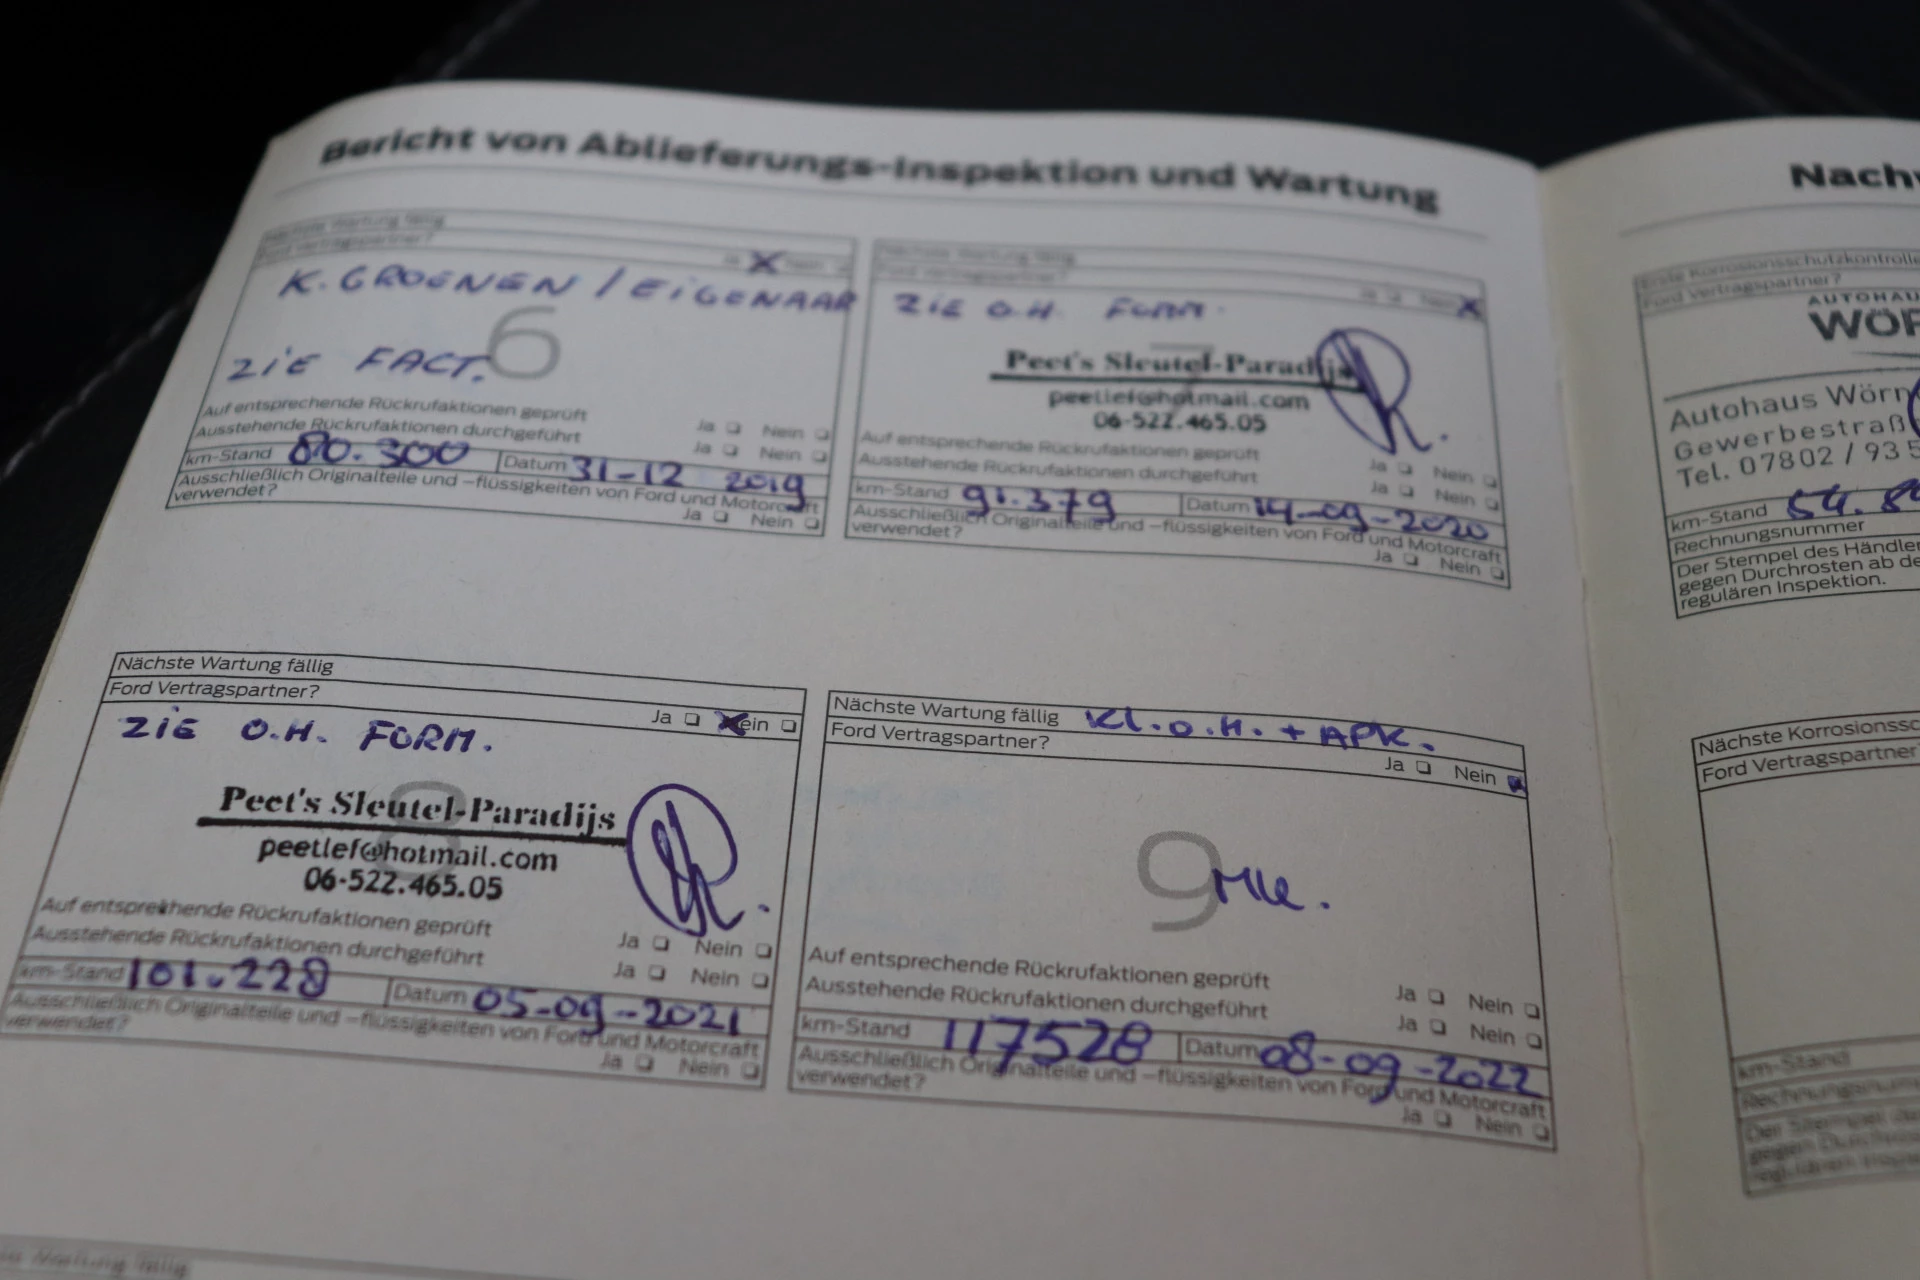 Bericht von Ablieferungs-Inspektion und Wartung
Nächste Wartung fällig
Ford Vertragspartner?
Ja X Nein
K. GROENEN / EIGENAAR
6
ZIE FACT.
Auf entsprechende Rückrufaktionen geprüft
Ja Nein
Ausstehende Rückrufaktionen durchgeführt
Ja Nein
km-Stand 80.300 Datum 31-12 2019
Ausschließlich Originalteile und –flüssigkeiten von Ford und Motorcraft
verwendet?
Ja Nein
Nächste Wartung fällig
Ford Vertragspartner?
Ja Nein X
ZIE O.H. FORM.
7
Peet's Sleutel-Paradijs
peetlef@hotmail.com
06-522.465.05
Auf entsprechende Rückrufaktionen geprüft
Ja Nein
Ausstehende Rückrufaktionen durchgeführt
Ja Nein
km-Stand 91.379 Datum 14-09-2020
Ausschließlich Originalteile und –flüssigkeiten von Ford und Motorcraft
verwendet?
Ja Nein
Nächste Wartung fällig
Ford Vertragspartner?
Ja Nein
ZIE O.H. FORM.
8
Peet's Sleutel-Paradijs
peetlef@hotmail.com
06-522.465.05
Auf entsprechende Rückrufaktionen geprüft
Ja Nein
Ausstehende Rückrufaktionen durchgeführt
Ja Nein
km-Stand 101.228 Datum 05-09-2021
Ausschließlich Originalteile und –flüssigkeiten von Ford und Motorcraft
verwendet?
Ja Nein
Nächste Wartung fällig Kl. O.H. + APK.
Ford Vertragspartner?
Ja Nein
9
Auf entsprechende Rückrufaktionen geprüft
Ja Nein
Ausstehende Rückrufaktionen durchgeführt
Ja Nein
km-Stand 117528 Datum 08-09-2022
Ausschließlich Originalteile und –flüssigkeiten von Ford und Motorcraft
verwendet?
Ja Nein
Wartung fällig
Nachw
Erste Korrosionsschutzkontrolle
Ford Vertragspartner?
AUTOHAU
WÖR
Autohaus Wörn
Gewerbestraß
Tel. 07802 / 93 5
km-Stand 54.8
Rechnungsnummer
Der Stempel des Händler
gegen Durchrosten ab de
regulären Inspektion.
Nächste Korrosionssc
Ford Vertragspartner
km-Stand
Rechnungsnum
Der Stempel de
gegen Durchros
regulären Inspe